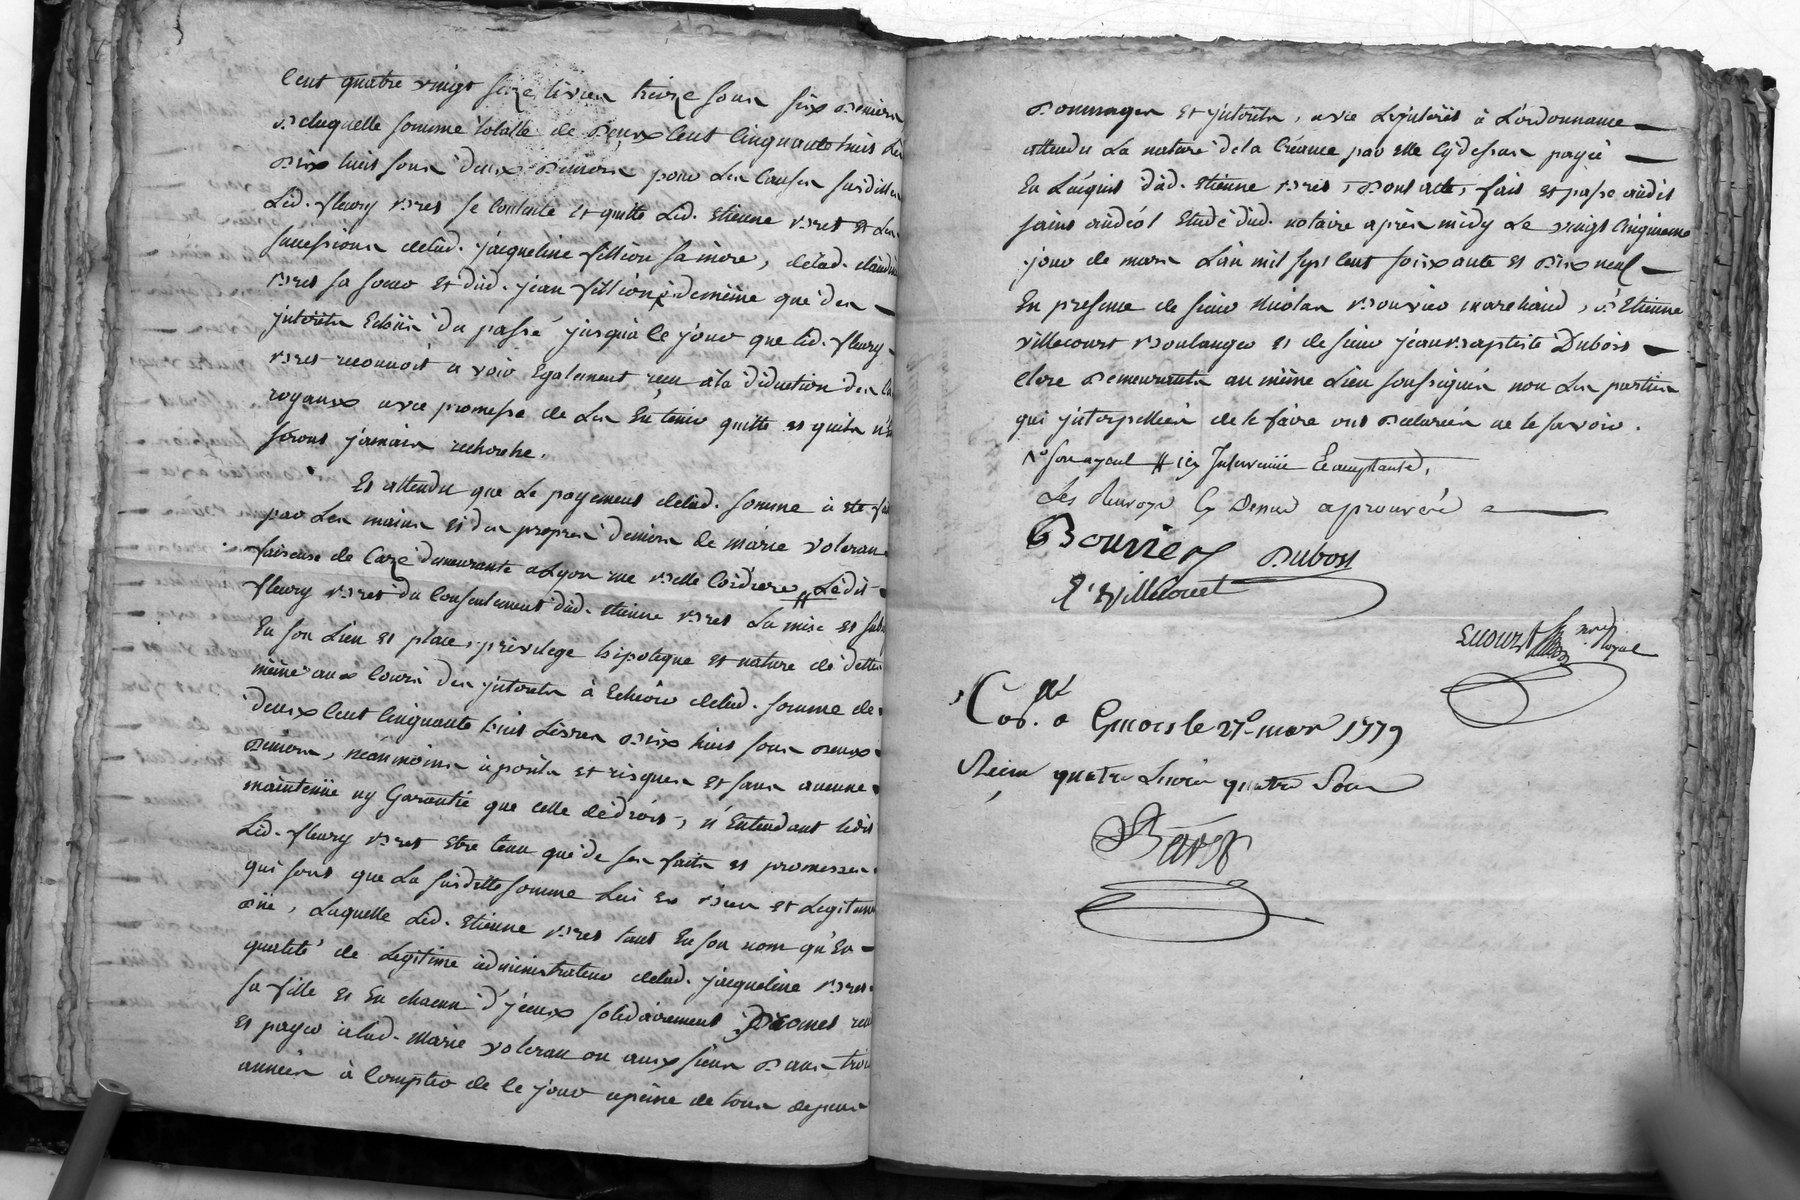 Cent quatre vingt seize livres treize sous six deniers
De laquelle somme totalle de Deux Cent Cinquante huit Li
Dix huit sous deux Deniers pour Les Causes susdittes
Led. fleury Bret se Contente et quitte Led. Etienne Bret et Les
successions delad. jacqueline fillion sa mère, delad. claudine
Bret sa soeur et dud. jean fillion, demême que des
jnterets Echus du passé jusqu'à ce jour que led. fleury
Bret reconnoit avoir Egalement reçu à la déduction des
royaux avec promesse de Les En tenir quitte et quils n'en
seront jamais recherché.
Et attendu que Le payement delad. somme a été fait
par Les mains et des propres deniers de Marie voleran
faiseuse de Caze demeurante à Lyon rue Belle Cordiere # Ledit
fleury Bret du Consentement dud. Etienne Bret La mise et sub
En son Lieu et place, privilege hipoteque et nature de dette
même aux Cours des jnterets à Echeoir delad. somme de
deux Cent Cinquante huit Livres Dix huit sous Deux
Deniers, néanmoins à perils et risques et sans aucune
maintenüe ny Garantie que celle de droit, n'Entendant ledit
Led. fleury Bret Etre tenu que de ses faits et promesses
qui sont que La susditte somme Lui est bien et Legitimement
düe, Laquelle Led. Etienne Bret tant En son nom qu'En
qualité de Legitime administrateur delad. jacqueline Bret
sa fille et En chacun d'jceux solidairement Promet
et payer à lad. Marie voleran ou aux siens Dans trois
années à Compter de ce jour à peine de tous depens
Dommages et jnterets, avec
attendu La nature de la Créance par elle Cy dessus payée
En L'acquit dud. Etienne Bret, Dont acte, fait et passé audit
saint andéol Etude dud. notaire après midy Le vingt Cinquieme
jour de mars L'an mil sept Cent soixante et Dix neuf
En presence de sieur Nicolas Bouvier marchand, s. Etienne
villecourt Boulanger et de sieur jean Baptiste Dubost
clerc Demeurants au même Lieu soussignés non Les parties
qui jnterpellées de le faire ont Déclarées ne le savoir.
son ayeul # icy Intervenüe Eacceptante,
Les Renvoys Cy Dessus aprouvéé
Bouvier Dubost
E. Villecourt
nore Royal
Con. a le 27e mars 1779
Reçu quatre Livres quatre Sous